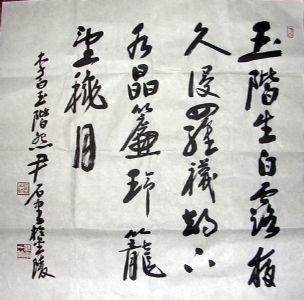 玉階生白露夜
久侵羅襪却下
水晶簾玲籠
望穐月
李白玉階怨 尹石書於金陵